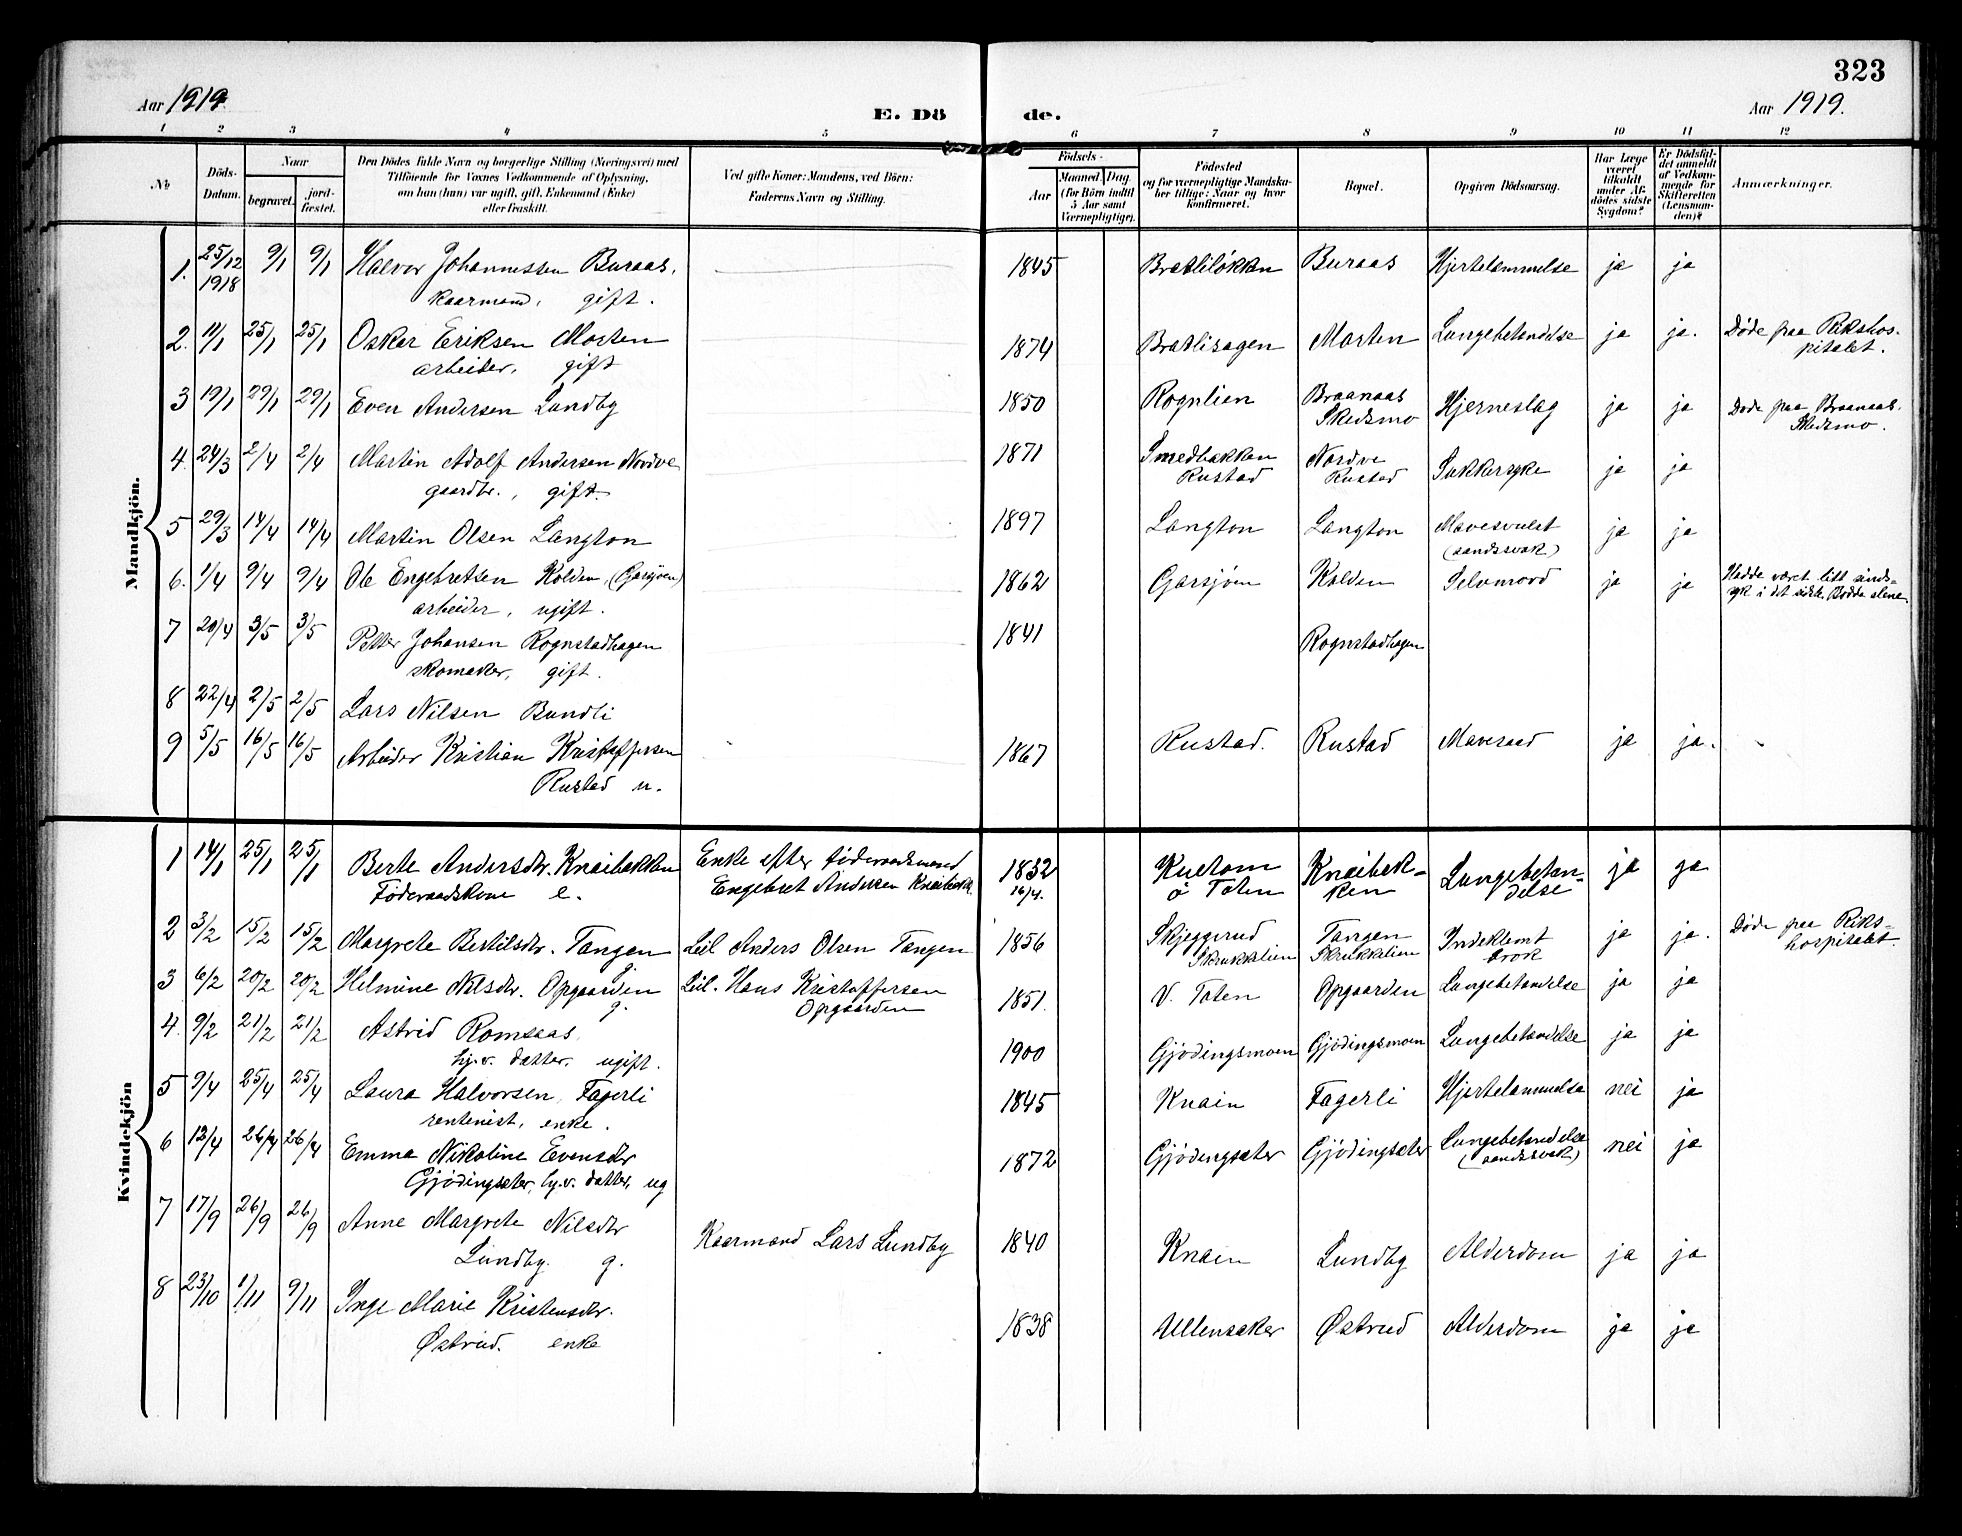 323
Aar 1919.
E. Dö
de.
Aar 1919.
1 2 3 4 5 6 7 8 9 10 11 12
No
Döds-
Datum.
Naar
begravet.
jord-
fæstet.
Den Dödes fulde Navn og borgerlige Stilling (Næringsvei) med
Tilföiende for Voxnes Vedkommende af Oplysning,
om hun (han) var ugift, gift, Enkemand (Enke)
eller fraskilt.
Ved gifte Koner: Mandens, ved Börn:
Faderens Navn og Stilling.
Födsels-
Aar
Maaned. Dag.
(for Börn indtil
5 Aar samt
Værnepligtige).
Födested
og for værnepligtige Mandska-
ber tillige: Naar og hvor
konfirmeret.
Bopæl.
Opgiven Dödsaarsag.
Har Læge
været
tilkaldt
under Af-
dödes sidste
Sygdom?
Er Dödsfal-
det anmeldt
af Vedkom-
mende for
Skifteretten
(Lensman-
den)?
Anmærkninger.
Mandkjön.
1. 25/12 9/1 9/1 Halvor Johannessen Buraas, 1845 Bratliløkken Buraas Hjertelammelse ja ja
1918 kaarmand, gift.
2. 11/1 25/1 25/1 Oskar Eriksen Morten 1874 Bratlihagen Morten Lungebetændelse ja ja. Døde paa Rikshos-
arbeider, gift pitalet.
3 19/1 29/1 29/1 Even Andersen Lundby 1850 Rognlien Braanaas Hjerneslag ja ja Døde paa Braanaas,
Skedsmo Skedsmo.
4. 24/3 2/4 2/4 Martin Adolf Andersen Nordve 1871 Smedbakken Nordve Sukkersyke ja ja
gaardbr., gift. Rustad Rustad
5 29/3 14/4 14/4 Martin Olsen Langton 1897 Langton Langton Mavesvulst ja ja
(aandssvak)
6. 1/4 9/4 9/4 Ole Engebretsen Kolden, (Garsjøen) 1862 Garsjøen Kolden Selvmord ja ja Hadde været litt sinds-
arbeider, ugift. syk i det sidste. Bodde alene.
7 20/4 3/5 3/5 Petter Johansen Rognstadhagen 1841 Rognstadhagen
skomaker, gift.
8 22/4 2/5 2/5 Lars Nilsen Bundli
9 5/5 16/5 16/5 Arbeider Kristian Kristoffersen 1867 Rustad. Rustad Mavesaad ja ja.
Rustad u.
Kvindekjön
1 14/1 25/1 25/1 Berte Andersdtr. Knaibakken Enke efter føderaadsmand 1832 Østre Toten Knaibak- Lungebetæn- ja ja
Føderaadskone e. Engebret Andersen Knaibakk. 16/4. ken delse
2 3/2 15/2 15/2 Margrete Bertilsdtr. Tangen Leil Anders Olsen Tangen 1856 Skjeggerud Tangen Indeklemt ja ja. Døde paa Riks-
Skrukkelien Skrukkelien brok hospitalet.
3 6/2 20/2 20/2 Helmine Nilsdtr. Opgaarden Leil. Hans Kristoffersen 1851. V. Toten Opgaarden Lungebetændelse ja ja
g. Opgaarden
4. 9/2 21/2 21/2 Astrid Romsaas, 1900 Gjødingsmoen Gjødingsmoen Lungebetændelse ja ja
hj.v. datter. ugift.
5 9/4 25/4 25/4 Laura Halvorsen Fagerli 1845 Knain Fagerli Hjertelammelse nei ja
rentenist, enke.
6 13/4 26/4 26/4 Emma Nikoline Evensdtr 1872 Gjødingsæter Gjødingsæter Lungebetændelse nei ja
Gjødingsæter, hj.v. datter, ug (aandssvak)
7 17/9 26/9 26/9 Anne Margrete Nilsdtr Kaarmand Lars Lundby 1840 Knain Lundby Alderdom ja ja
Lundby. g.
8 23/10 1/11 9/11 Inge Marie Kristensdtr. 1838 Ullensaker Østrud Alderdom ja ja
Østrud. enke